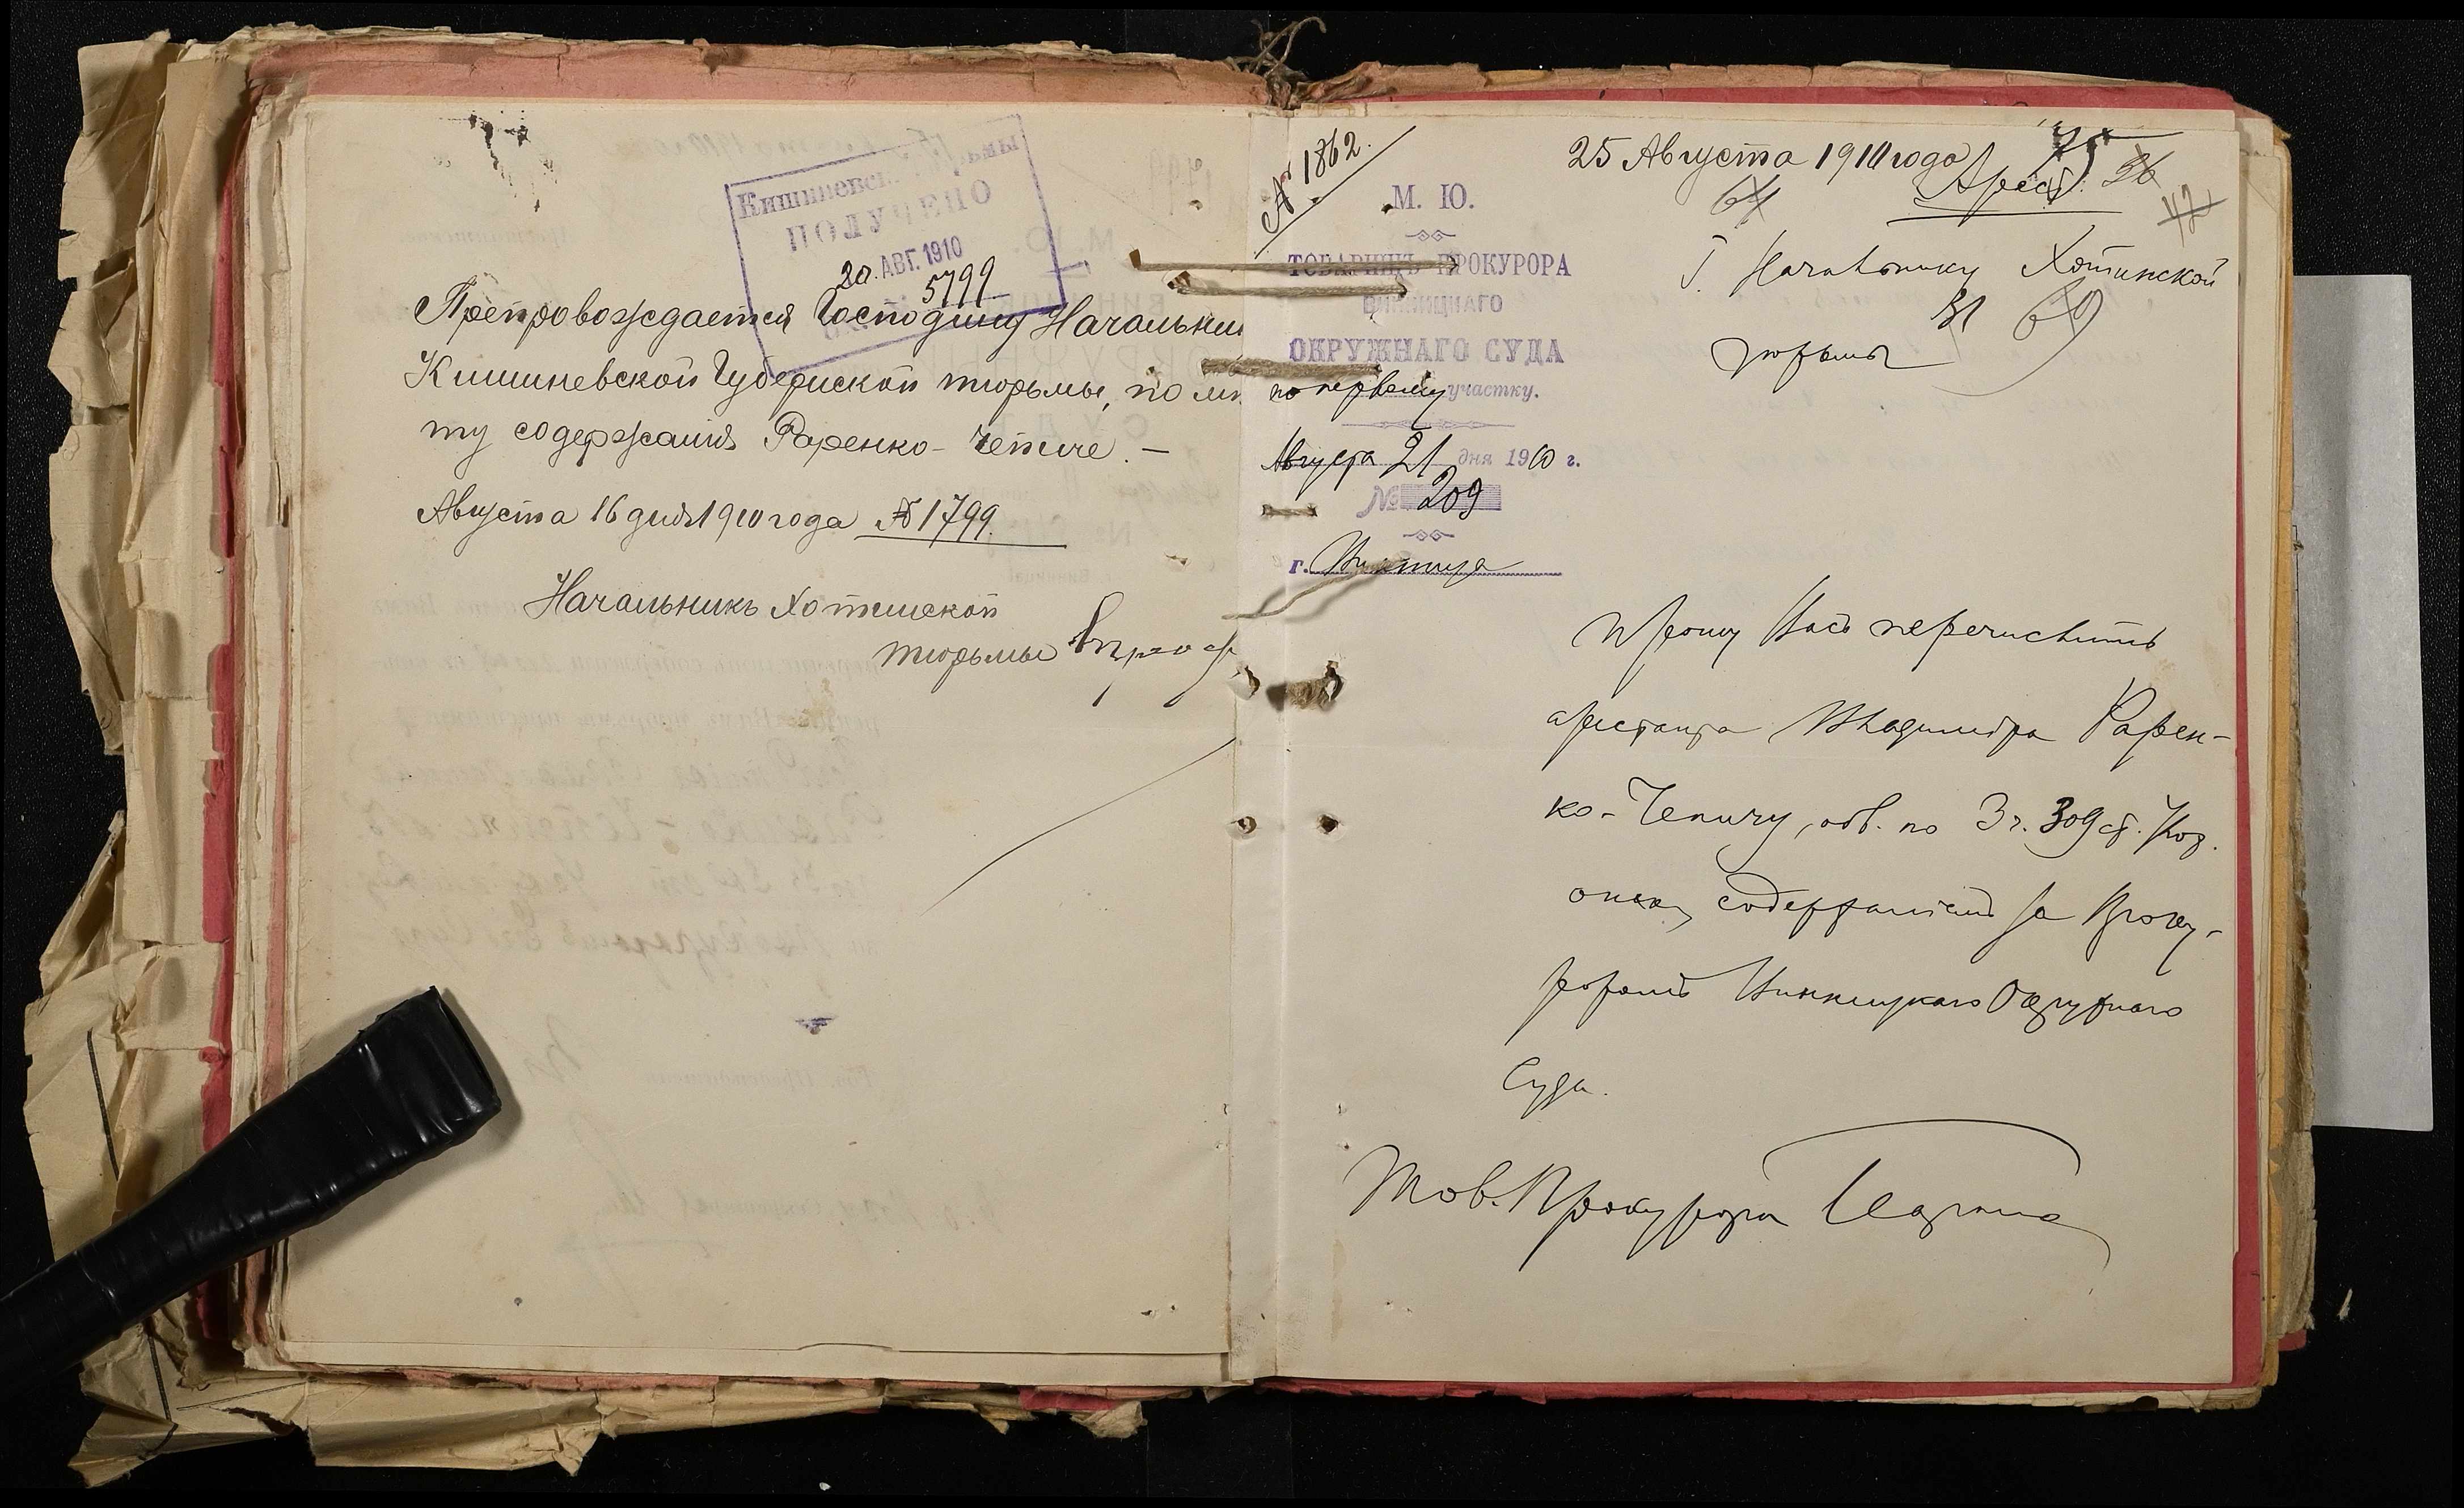 Кишиневск
ПОЛУЧЕНО
20 АВГ. 1910
5799
Препровождается Господину Начальни
Кишиневской Губернской тюрьмы, по мѣ
ту содержанія Раренко-Чепиче. —
Августа 16 дня 1910 года № 1799.
Начальникъ Хотинской
тюрьмы
№ 1862.
М. Ю.
ТОВАРИЩЪ ПРОКУРОРА
ВИННИЦКАГО
ОКРУЖНАГО СУДА
по первому участку.
Августа 21 дня 1910 г.
№ 209
г. Винница
25 Августа 1910 года
Арест.
75
26
64
42
Г. Начальнику Хотинской
31 69
тюрьмы
Прошу Васъ перечислить
арестанта Владимира Рарен-
ко-Чепичу, обв. по 3 ч. 309 ст. Улож.
о нак., содержаніемъ за Проку-
роромъ Винницкаго Окружнаго
Суда.
Тов. Прокурора